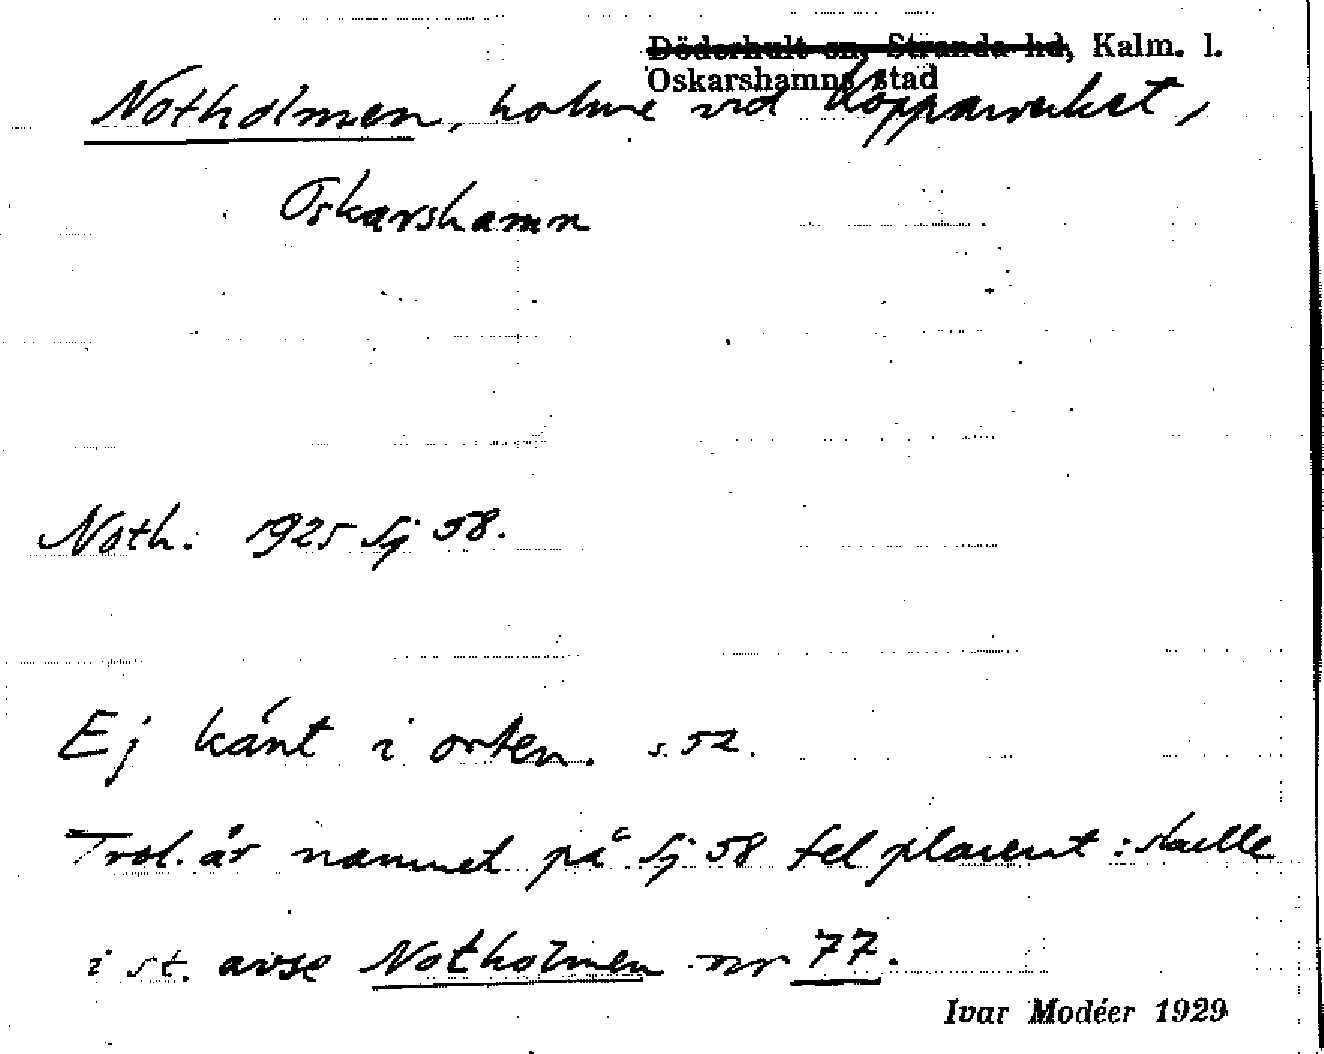 Döderhult sn, Stranda hd, Kalm. l.
Oskarshamns stad
Notholmen, holme vid Kopparverket,
Oskarshamn
Noth. 1925 Sj 58.
Ej känt i orten. s. 52.
Trol. är namnet på Sj 58 fel placerat: skulle
i st. avse Notholmen nr 77.
Ivar Modéer 1929